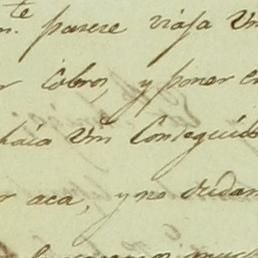 te parese viaja Vm
r cobros, y poner en
haia Vm Conseguido
r aca, y no dudan